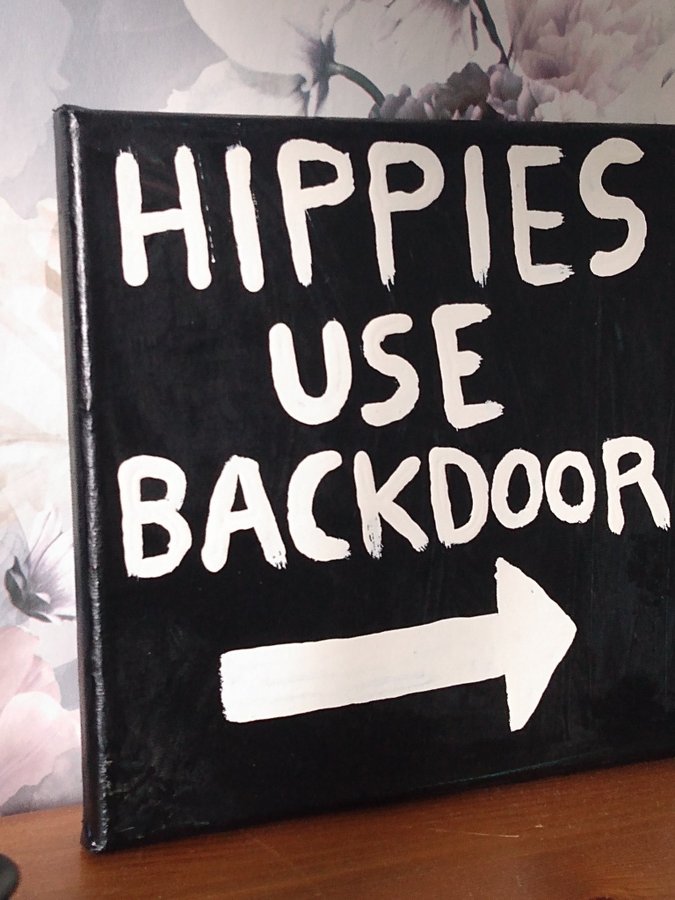 HIPPIES
USE
BACKDOOR